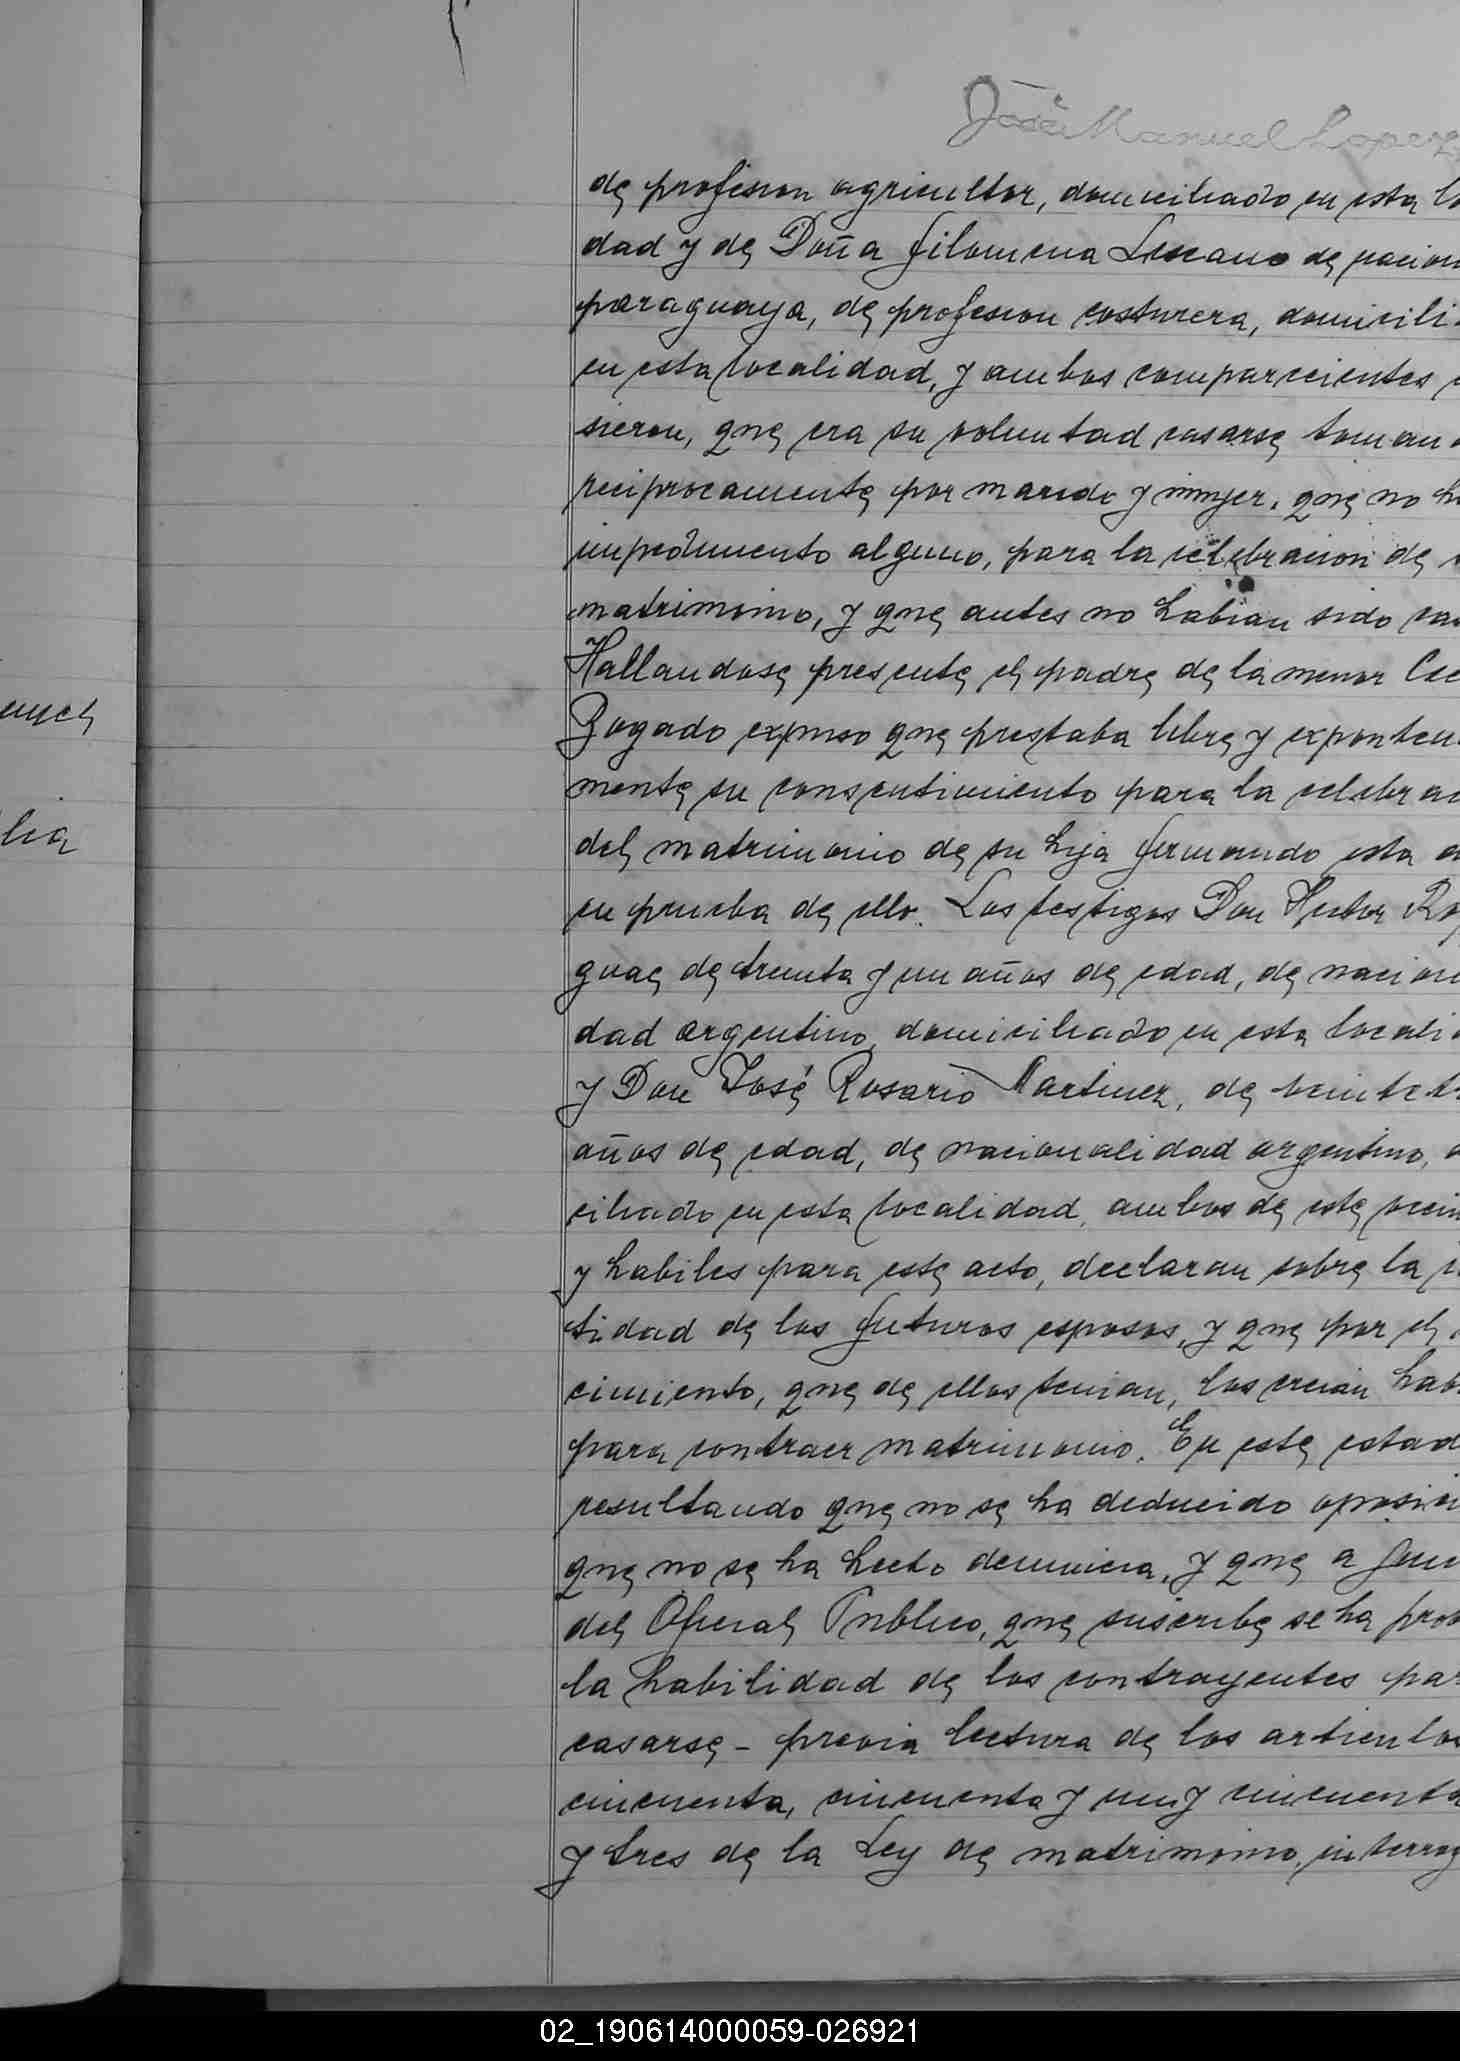 José Manuel Lopez
de profesion agricultor, domiciliado en esta lo
dad y de Doña filomena Lescano de nacion
paraguaya, de profesion costurera, domicili
en esta localidad, y ambos comparecientes
sieron, que era su voluntad casarse toman
reciprocamente por marido y mujer, que no h
impedimento alguno, para la celebracion de
matrimonio, y que antes no habian sido cas
Hallandose presente el padre de la menor
Gogado expuso que prestaba libre y exponten
mente su consentimiento para la celebrac
del matrimonio de su hija firmando esta a
en prueba de ello. Los testigos Don Hector
guae de treinta y un años de edad, de nacion
dad argentino, domiciliado en esta locali
y Don José Rosario Martinez, de veinte t
años de edad, de nacionalidad argentino,
ciliado en esta localidad, ambos de este vecin
y habiles para este acto, declaran sobre la i
tidad de los futuros esposos, y que por el
cimiento, que de ellos tenian, los creian hab
para contraer matrimonio. En este estad
resultando que no se ha deducido oposici
que no se ha hecho denuncia, y que a juic
del Oficial Publico, que suscribe se ha prob
la habilidad de los contrayentes par
casarse - previa lectura de los articulos
cincuenta, cincuenta y un y cincuenta
y tres de la Ley de matrimonio, interrog
lia
02_190614000059-026921